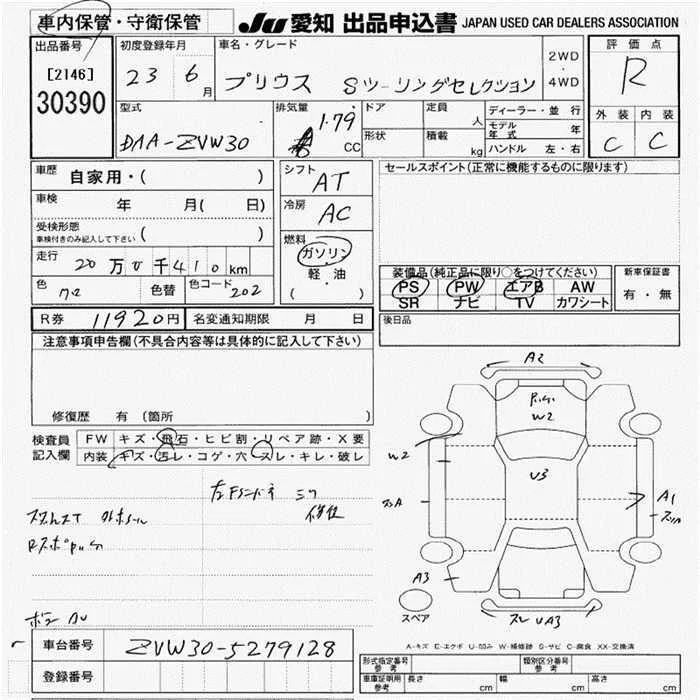 車内保管・守衛保管
JU 愛知 出品申込書 JAPAN USED CAR DEALERS ASSOCIATION
出品番号
[2146]
30390
初度登録年月
23 6月
車名・グレード
プリウス Sツーリングセレクション
2WD
・
4WD
評価点
R
外装 内装
C C
型式
DAA-ZVW30
排気量
1.79
CC
ドア
定員
人
形状
積載
kg
ディーラー・並行
モデル年式 年
ハンドル 左・右
車歴
自家用・( )
車検
年 月( 日)
受検形態
車検付きのみ記入して下さい ( )
走行
20万0千410km
色
色替
色コード 202
シフト
AT
冷房
AC
燃料
ガソリン
・
軽・油
( )
セールスポイント(正常に機能するものに限ります)
装備品(純正品に限り○をつけてください)
PS PW エアB AW
SR ナビ TV カワシート
新車保証書
有・無
後日品
R券 11920円
名変通知期限 月 日
注意事項申告欄(不具合内容等は具体的に記入して下さい)
修復歴 有(箇所 )
検査員
記入欄
FW キズ・飛石・ヒビ割・リペア跡・X要
内装 キズ・汚レ・コゲ・穴・スレ・キレ・破レ
A2
W2
W2
U3
A1
A3
スペア
UA3
A-キズ E-エクボ U-凹み W-補修跡 S-サビ C-腐食 XX-交換済
車台番号
ZVW30-5279128
登録番号
形式指定番号
参考
類別区分番号
参考
車庫証明用
参考
長さ cm
幅 cm
高さ cm